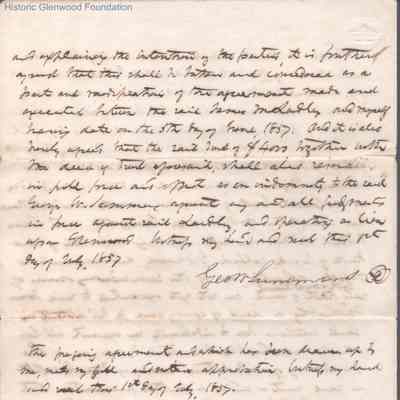 Historic Glenwood Foundation
and explaining the intention of the parties, it is further
agreed that this shall be taken and considered as a
part and modification of the agreement made and
executed between the said James and myself
bearing date on the 5th day of June 1857. And it is also
hereby agreed that the said note of $4000 together with
the deed of trust aforesaid, shall also remain
in full force and effect as an indemnity to the said
George W. Summers against any and all judgments
in force against said Laidley, and operating as liens
upon Glenwood. Witness my hand and seal this 1st
day of July, 1857
Geo W Summers
The foregoing agreement and which has been drawn up by
me, meets my full and entire approbation. Witness my hand
and seal this 1st day of July, 1857.